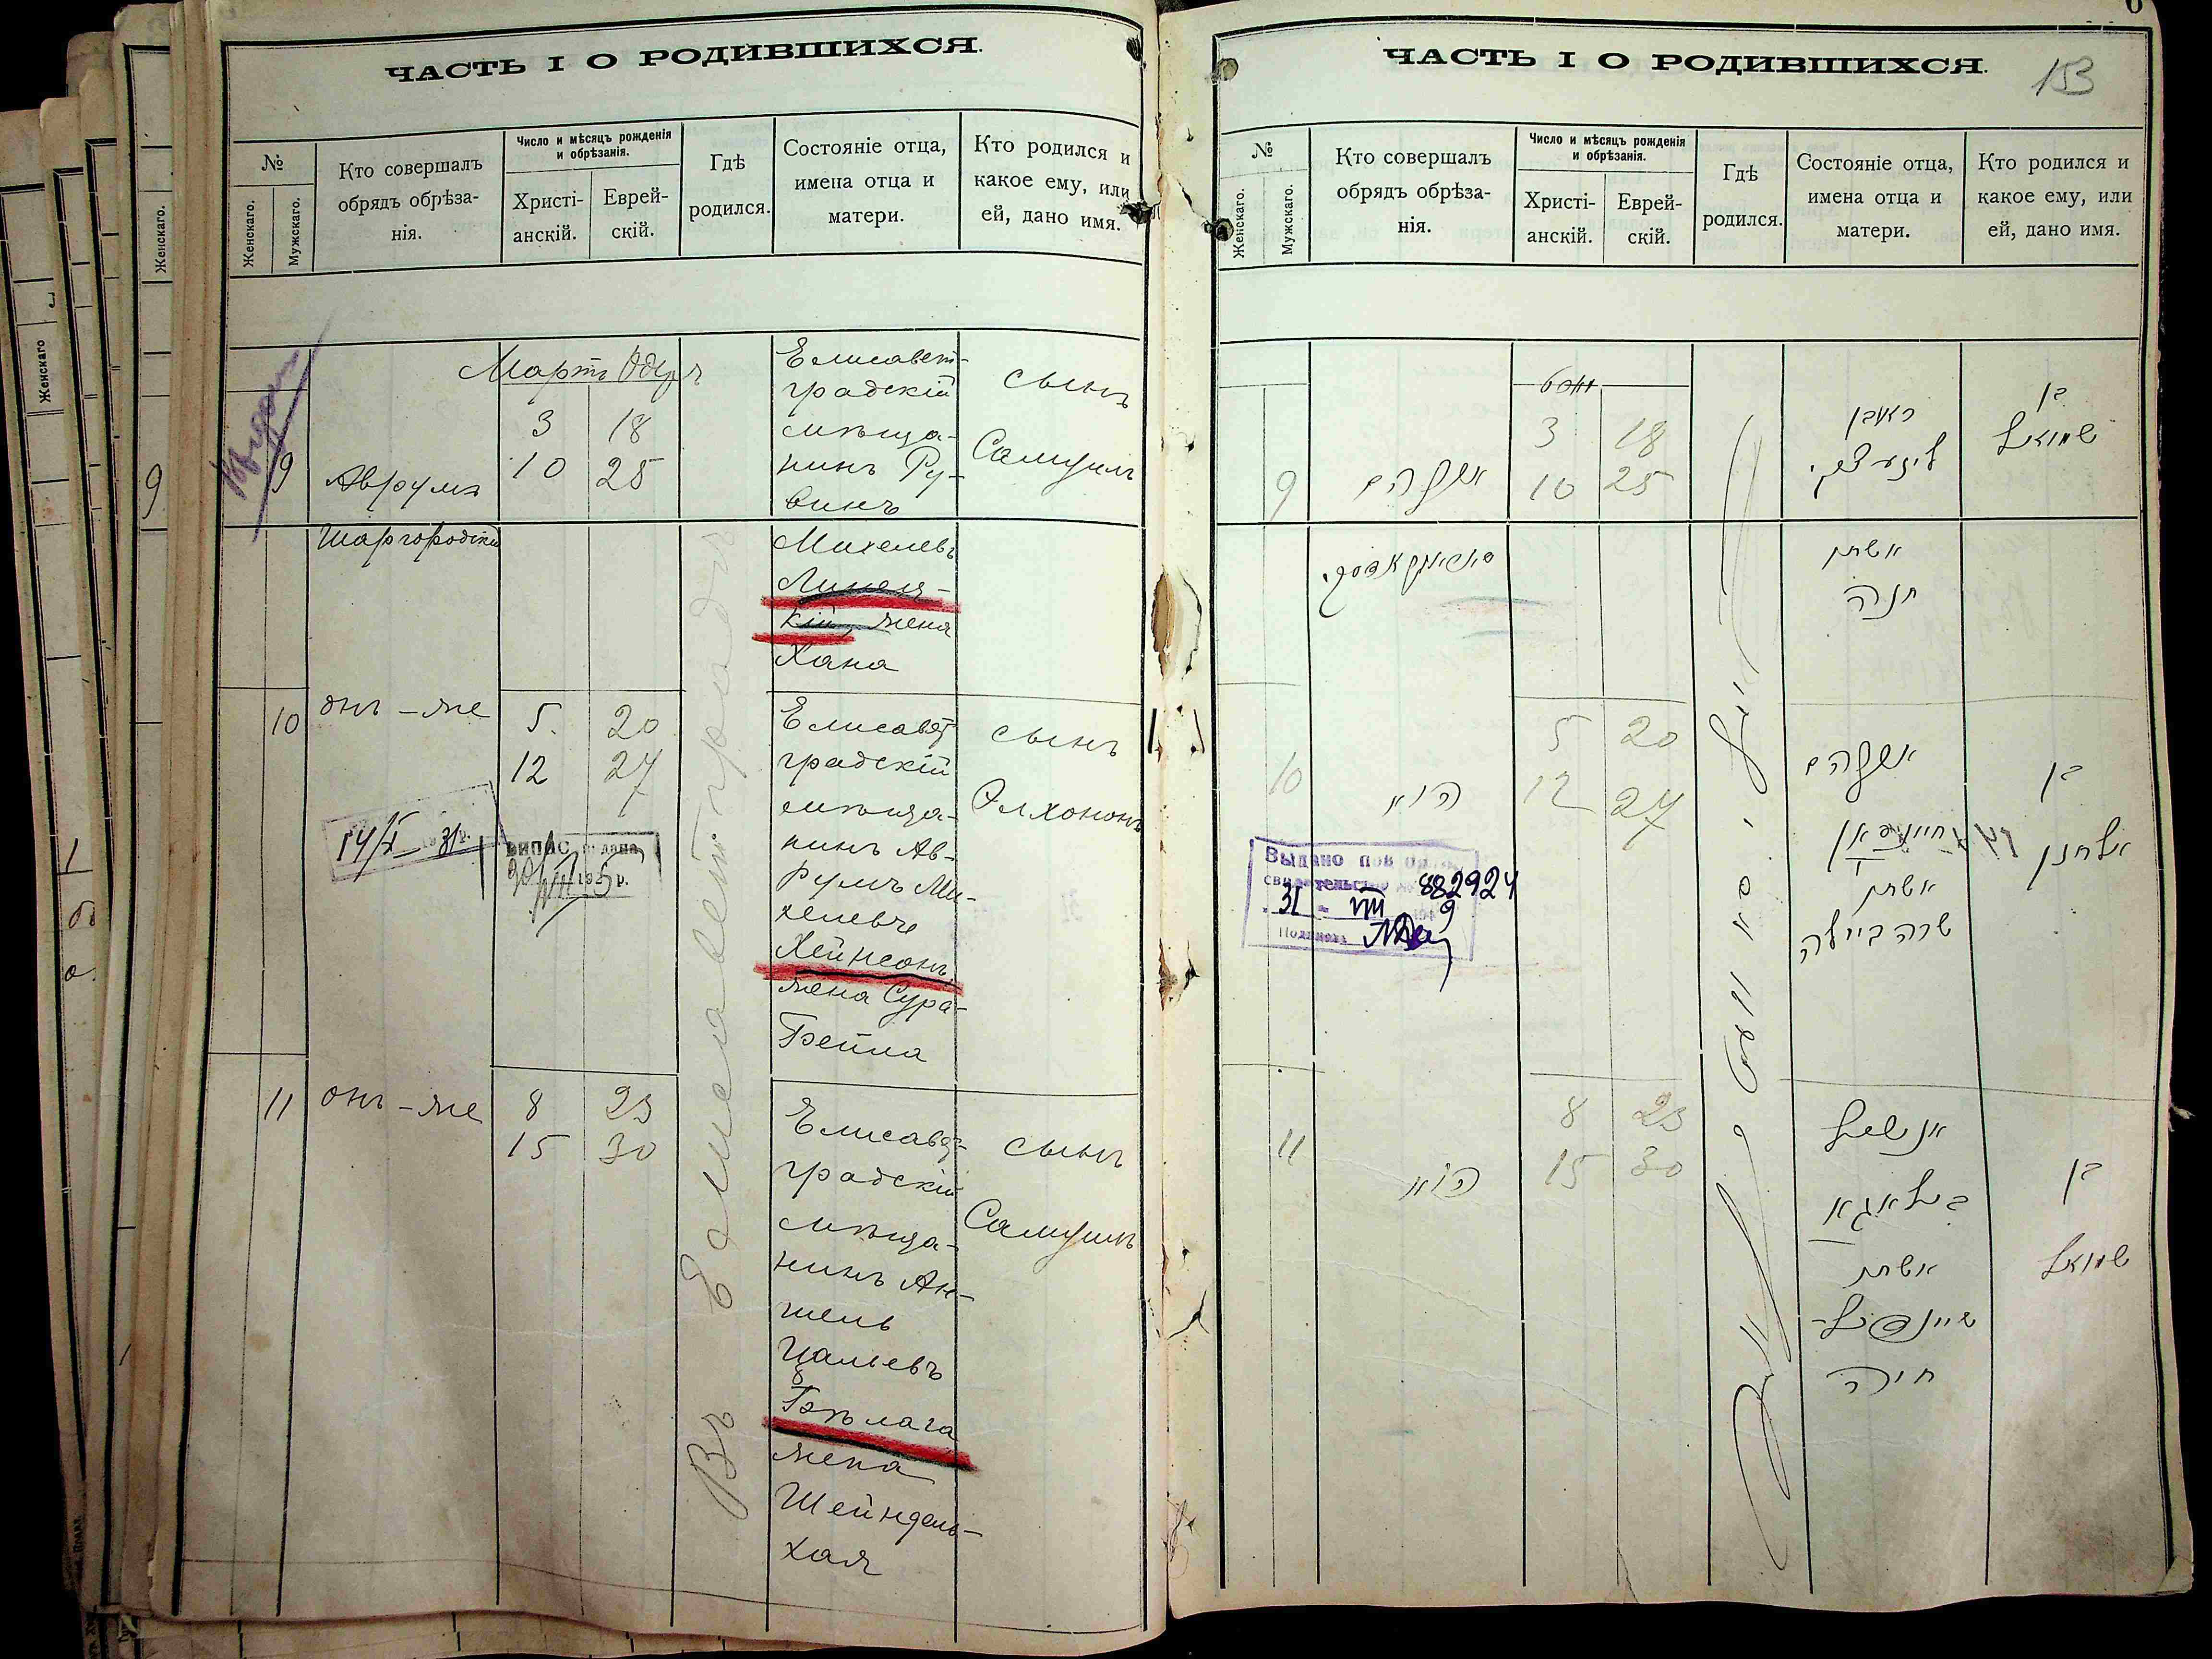 ЧАСТЬ I О РОДИВШИХСЯ.
№
Женскаго.
Мужскаго.
Кто совершалъ
обрядъ обрѣза-
нія.
Число и мѣсяцъ рожденія
и обрѣзанія.
Христі-
анскій.
Еврей-
скій.
Гдѣ
родился.
Состояніе отца,
имена отца и
матери.
Кто родился и
какое ему, или
ей, дано имя.
Мартъ Адаръ
9
Аврумъ
Шаргородскій
3 18
10 25
Въ Елисаветградѣ
Елисавет-
градскій
мѣща-
нинъ Ру-
винъ
Михелевъ
жена
Хана
сынъ
Самуилъ
10
онъ-же
5. 20
12 27
Елисавет
градскій
мѣща-
нинъ Ав-
румъ Ми-
хелевъ
Хейнсонъ
жена Сура-
Бейла
сынъ
Элхононъ
11
онъ-же
8 23
15 30
Елисавет-
градскій
мѣща-
нинъ Ан-
шель
жена
Шейндель-
Хая
сынъ
Самуилъ
ЧАСТЬ I О РОДИВШИХСЯ.
153
№
Женскаго.
Мужскаго.
Кто совершалъ
обрядъ обрѣза-
нія.
Число и мѣсяцъ рожденія
и обрѣзанія.
Христі-
анскій.
Еврей-
скій.
Гдѣ
родился.
Состояніе отца,
имена отца и
матери.
Кто родился и
какое ему, или
ей, дано имя.
9
אברהם
3 18
10 25
ראובן
אשתו
חנה
בן
שמואל
10
הוא
5 20
12 27
אברהם
אשתו
שרה ביילה
בן
אלחנן
Выдано
882924
31 - VIII
11
הוא
8 23
15 30
אנשיל
אשתו
שיינדיל-
חיה
בן
שמואל